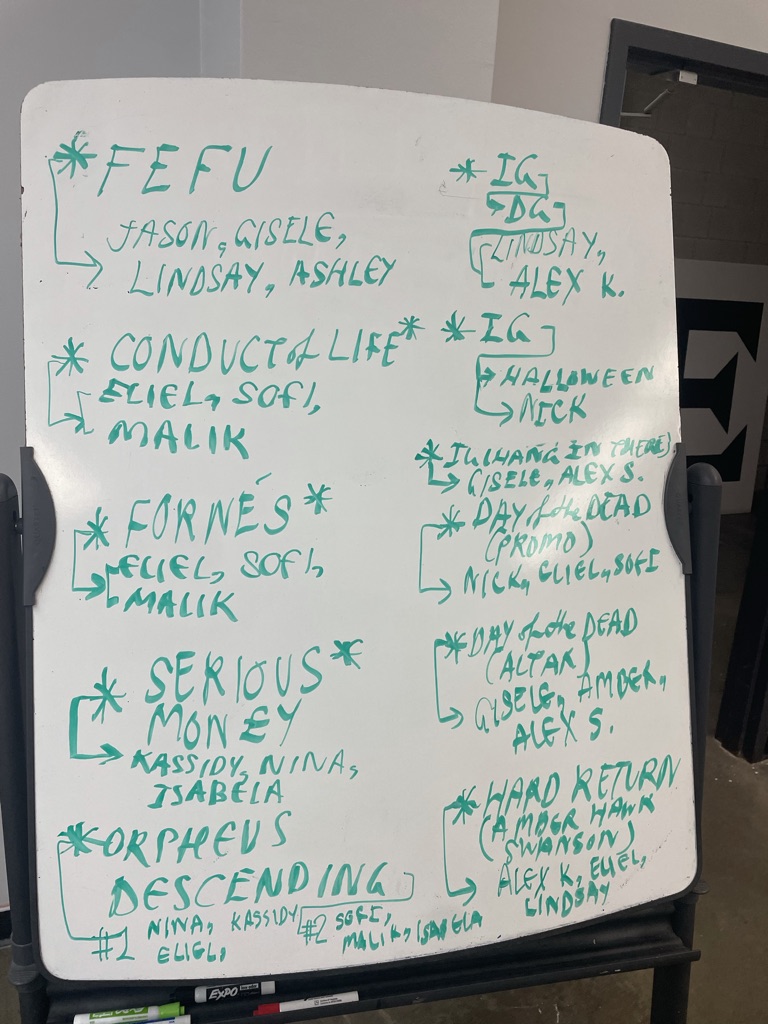 * FEFU
JASON, GISELE,
LINDSAY, ASHLEY
* CONDUCT of LIFE *
ELIEL, SOFI,
MALIK
* FORNÉS *
ELIEL, SOFI,
MALIK
* SERIOUS *
MONEY
KASSIDY, NINA,
ISABELA
* ORPHEUS
DESCENDING
#1 NINA, KASSIDY
ELIEL,
#2 SOFI,
MALIK, ISABELA
* IG
DG
LINDSAY,
ALEX K.
* IG
HALLOWEEN
NICK
* IG (HANG IN THERE)
GISELE, ALEX S.
* DAY of the DEAD
(PROMO)
NICK, ELIEL, SOFI
* DAY of the DEAD
(ALTAR)
GISELE, AMBER,
ALEX S.
* HARD RETURN
(AMBER HAWK
SWANSON)
ALEX K, ELIEL,
LINDSAY
E
EXPO